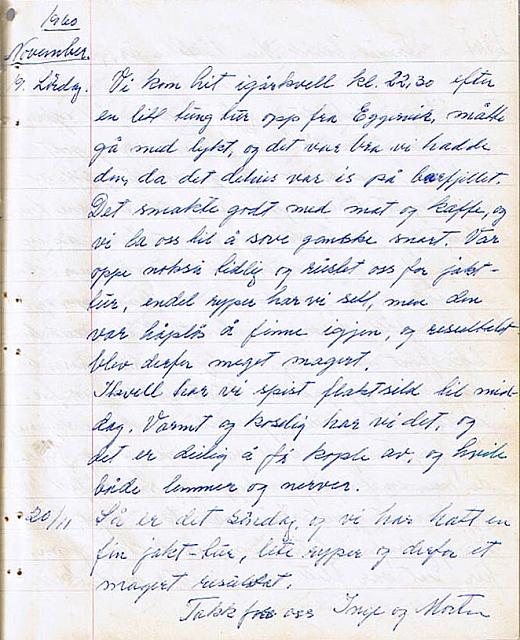 1960
November.
19. Lördag. Vi kom hit igårkvell kl. 22,30 efter
en litt tung tur opp fra Eggevik, måtte
gå med lykt, og det var bra vi hadde
den, da det delvis var is på barfjellet.
Det smakte godt med mat og kaffe, og
vi la oss til å sove ganske snart. Var
oppe nokså tidlig og rustet oss for jakt-
tur, endel ryper har vi sett, men den
var håpløs å finne igjen, og resultatet
blev derfor meget magert.
Ikvell har vi spist flaktsild til mid-
dag. Varmt og koselig har vi det, og
det er deilig å få kople av, og hvile
både lemmer og nerver.
20/11 Så er det Söndag, og vi har hatt en
fin jakt-tur, lite ryper og derfor et
magert resultat.
Takk for oss Inge og Morten